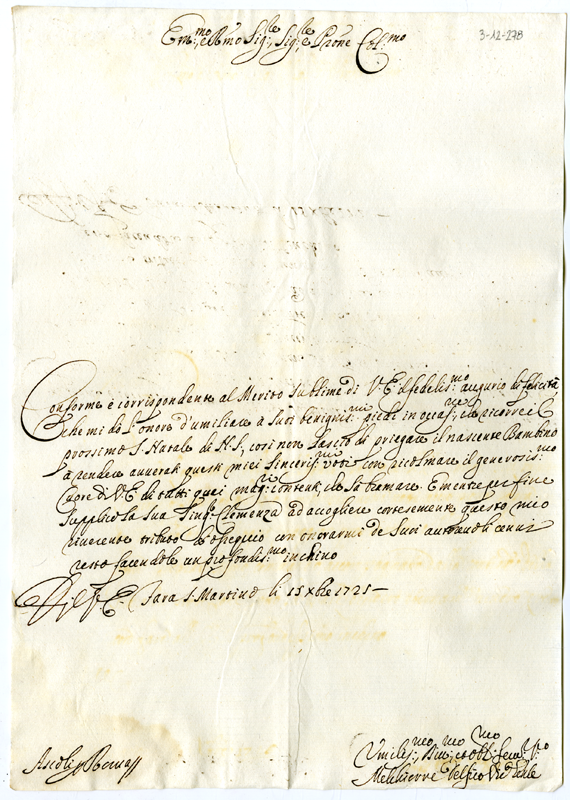 3-12-278
Em.mo e R.mo Sig.r, Sig.r e P̃rone Col.mo
Conforme è corrispondente al Merito Sublime di V: E: il fedelis:mo augurio di felicità
che mi dò l'onore d'umiliare à Suoi benignis:mi piedi in occas:ne, che ricorre il
prossimo S. Natale di N: S:, così non lascio di priegare il nascente Bambino
à rendere auuerati questi miei Sinceris:mi voti con ricolmare il generosis:mo
Cuore di V: E: di tutti quei mag:ri contenti, che sà bramare. E mentre per fine
Supplico la Sua Sing:r Clemenza ad accogliere cortesemente questo mio
riuerente tributo d'ossequio con onorarmi de Suoi autoreuoli cenni
resto facendole un profondis:mo inchino
Di V: E: Fara S. Martino li 15 Xbre 1725 –
Umilis:mo, Diu:mo, et Obl:mo Seru:re V:ro